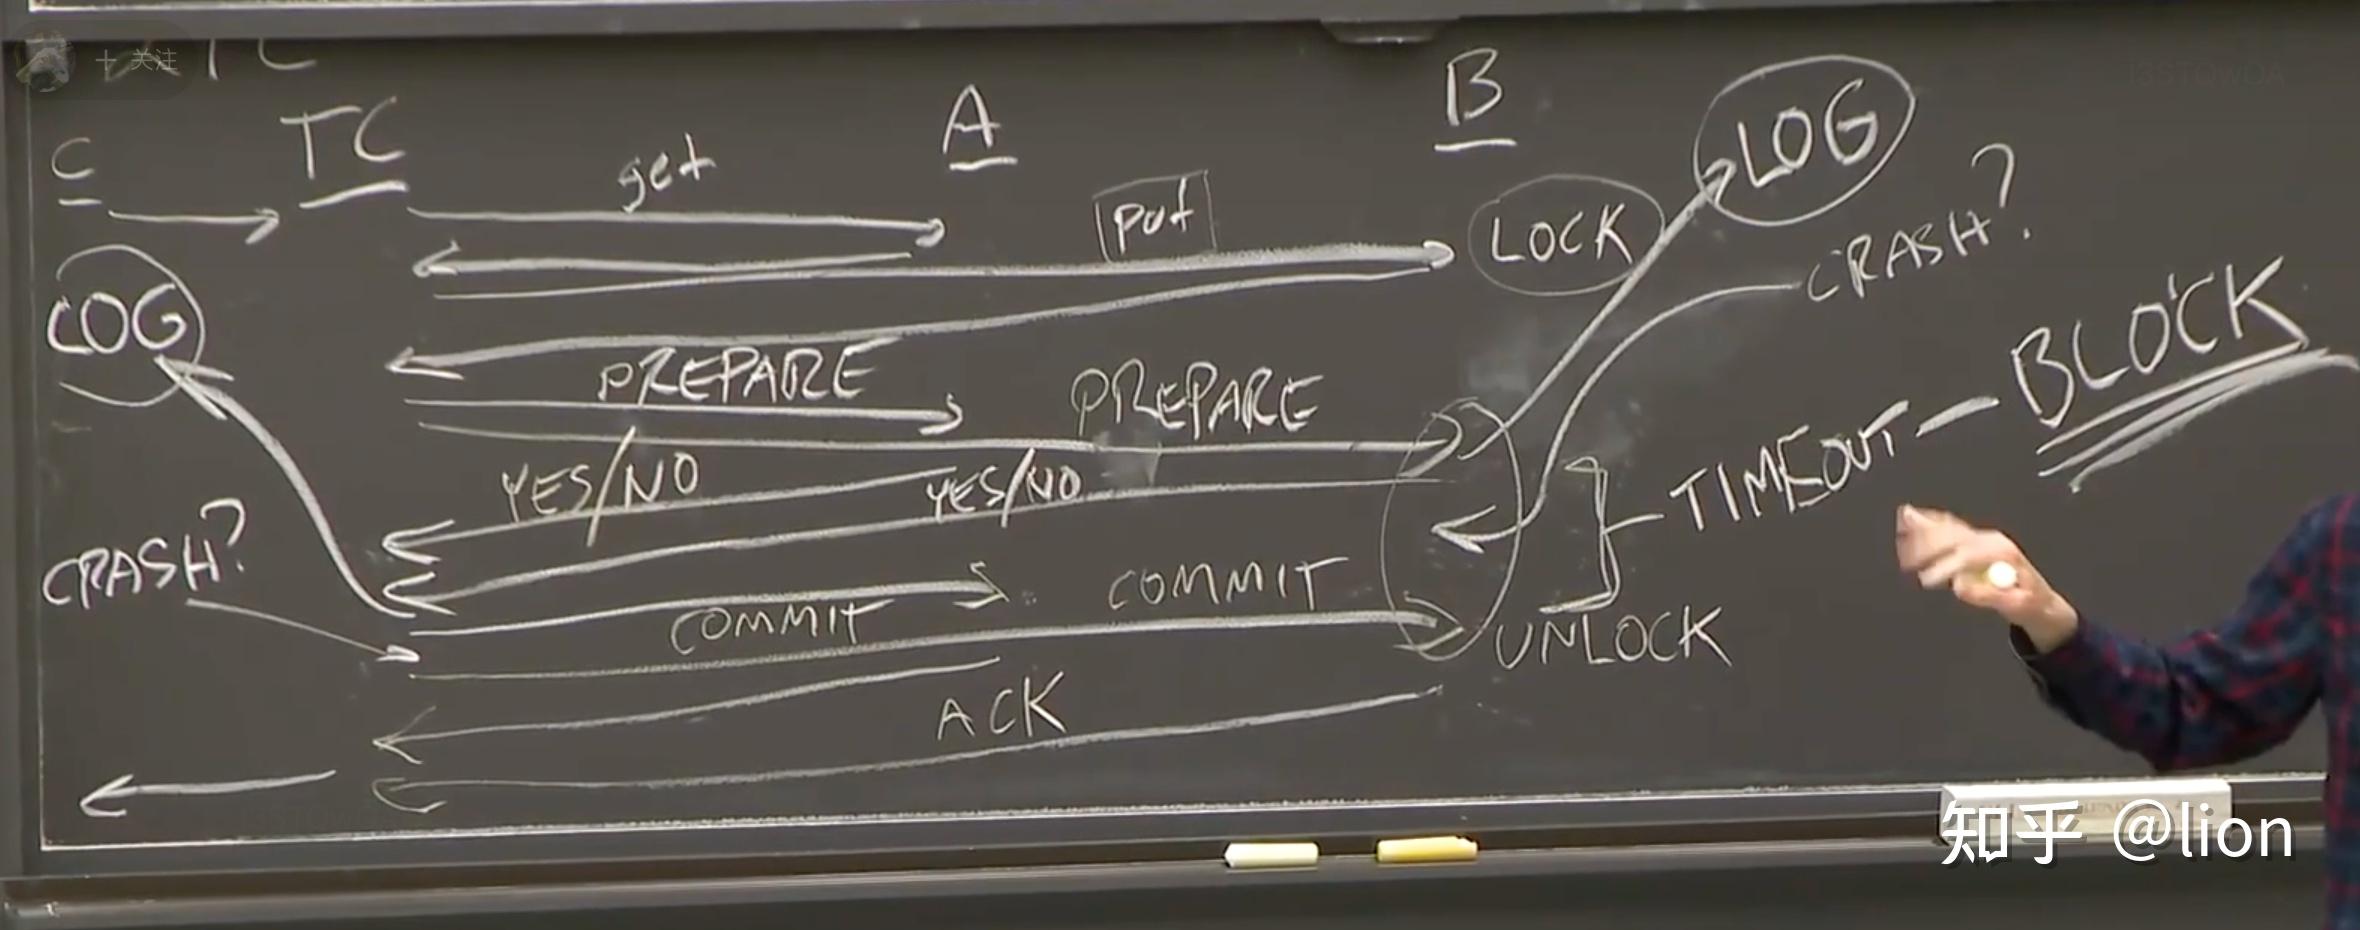 + 关注
C
TC
A
B
LOG
get
put
LOCK
CRASH?
LOG
PREPARE
PREPARE
BLOCK
TIMEOUT
YES/NO
YES/NO
CRASH?
COMMIT
COMMIT
UNLOCK
ACK
知乎 @lion